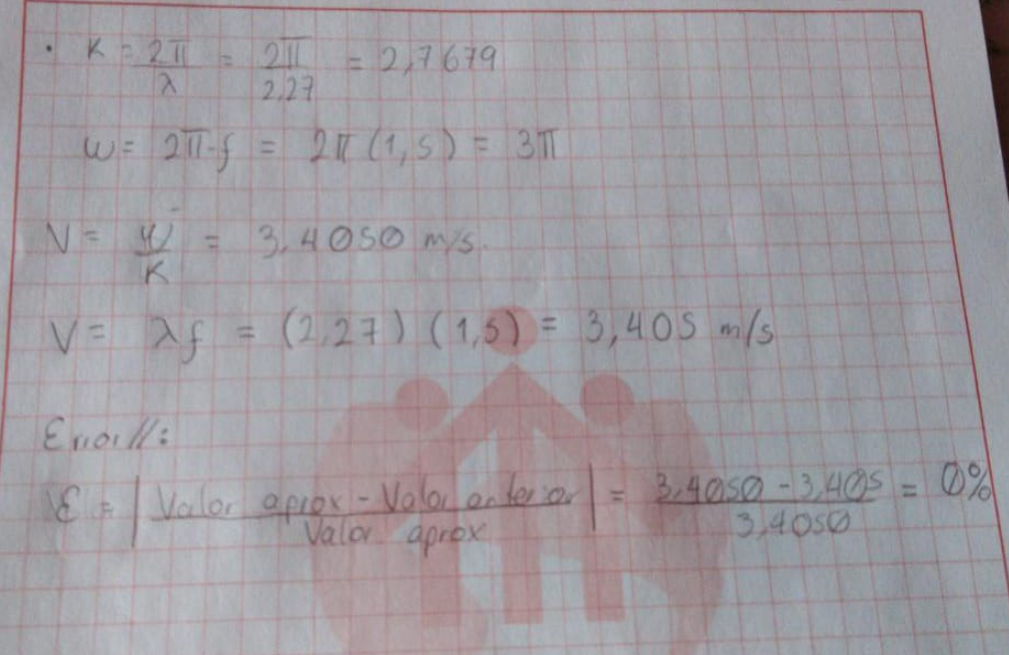 • K = 2π/λ = 2π/2,27 = 2,7679
w = 2π·f = 2π(1,5) = 3π
V = w/K = 3,4050 m/s.
V = λf = (2,27) (1,5) = 3,405 m/s
Error//:
ε = |Valor aprox - Valor anterior/Valor aprox| = 3,4050 - 3,405/3,4050 = 0%